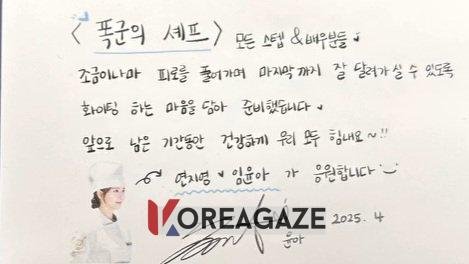 〈폭군의 셰프〉 모든 스텝 & 배우분들 ♥
조금이나마 피로를 풀어가며 마지막까지 잘 달려가실 수 있도록
화이팅 하는 마음을 담아 준비했습니다 ♥
앞으로 남은 기간동안 건강하게 우리 모두 힘내요~!!
연지영 ♥ 임윤아 가 응원합니다
KOREAGAZE
윤아 2025. 4